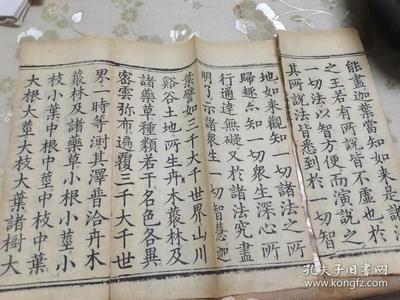 能盡迦葉當知如來是諸法
之王若有所說皆不虛也於
一切法以智方便而演說之
其所說法皆悉到於一切智
地如來觀知一切諸法之所
歸趣亦知一切衆生深心所
行通達無礙又於諸法究盡
明了示諸衆生一切智慧迦
葉譬如三千大千世界山川
谿谷土地所生卉木叢林及
諸藥草種類若干名色各異
密雲弥布遍覆三千大千世
界一時等澍其澤普洽卉木
叢林及諸藥草小根小莖小
枝小葉中根中莖中枝中葉
大根大莖大枝大葉諸樹大
孔夫子旧书网